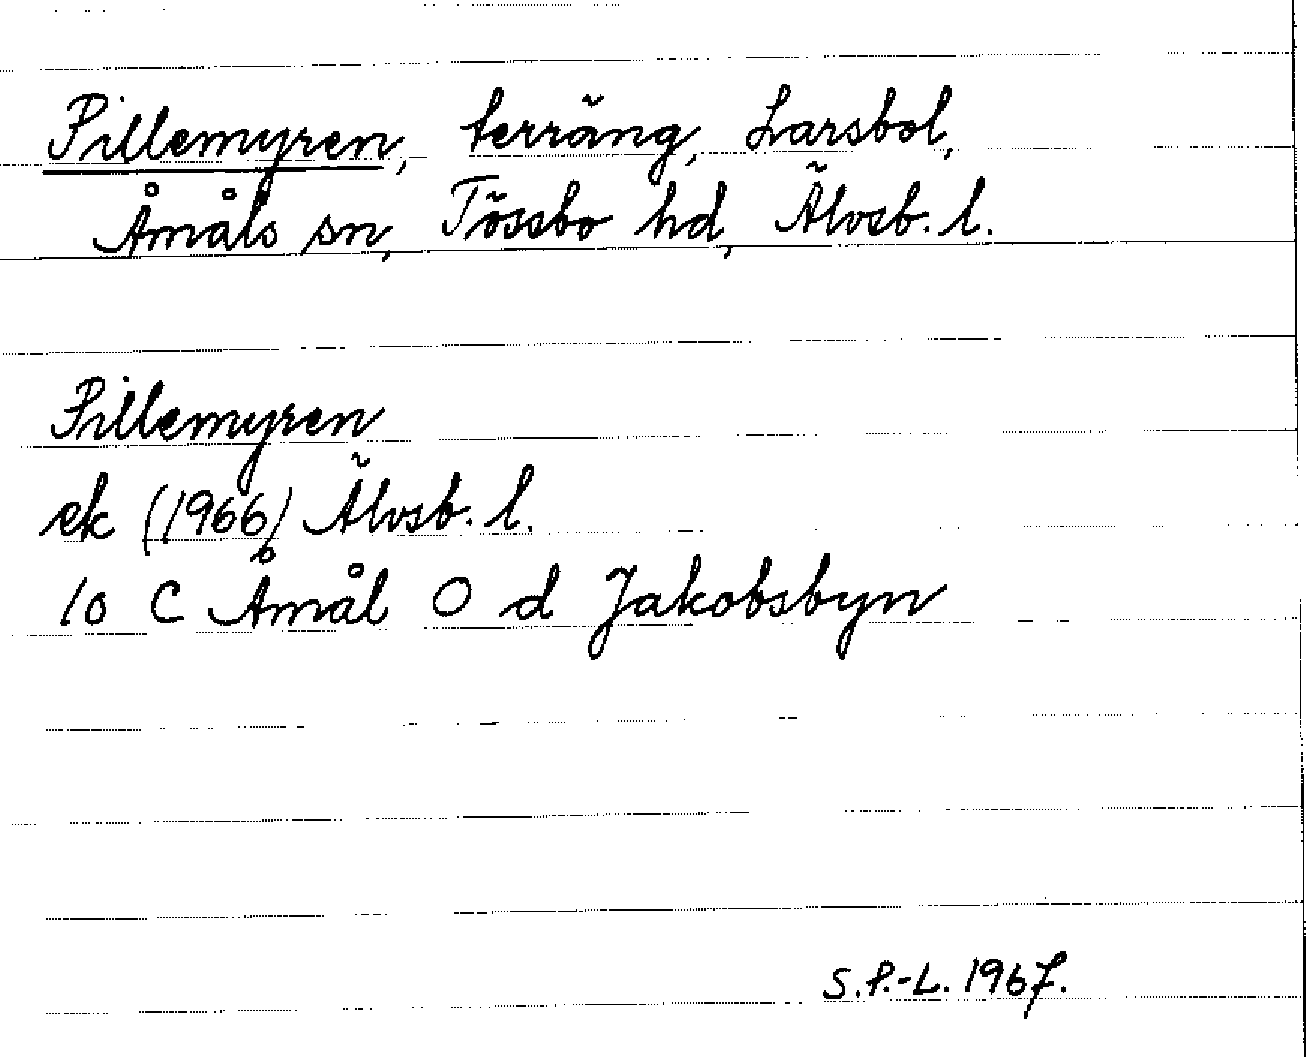 Pillemyren, terräng, Larsbol,
Åmåls sn, Tössbo hd, Älvsb. l.
Pillemyren
ek (1966) Älvsb. l.
10 C Åmål O d Jakobsbyn
S.P.-L. 1967.